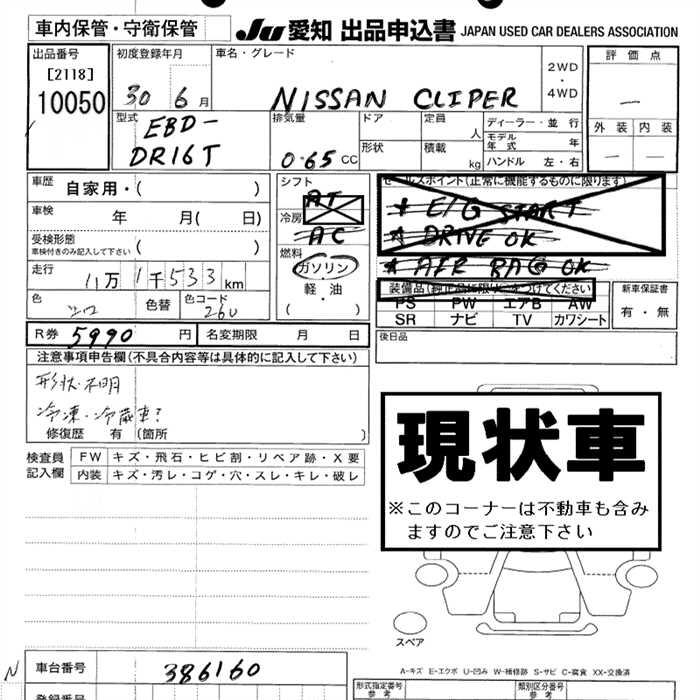 車内保管・守衛保管
JU 愛知 出品申込書 JAPAN USED CAR DEALERS ASSOCIATION
出品番号
[2118]
10050
初度登録年月
30 6 月
車名・グレード
NISSAN CLIPER
2WD
・
4WD
評価点
—
外装 内装
— —
型式
EBD-
DR16T
排気量
0.65 CC
ドア
定員
人
形状
積載
kg
ディーラー・並行
モデル年式 年
ハンドル 左・右
車歴 自家用・( )
車検 年 月( 日)
受検形態
車検付きのみ記入して下さい ( )
走行 11万 1千533 km
色 シロ 色替 色コード 26U
R券 5990 円 名変期限 月 日
シフト
AT
冷房
AC
燃料
ガソリン
・
軽・油
( )
セールスポイント(正常に機能するものに限ります)
★ E/G START
★ DRIVE OK
★ AIR BAG OK
装備品(純正品に限り○をつけてください)
PS PW エアB AW
SR ナビ TV カワシート
新車保証書
有・無
後日品
注意事項申告欄(不具合内容等は具体的に記入して下さい)
形状不明
冷凍・冷蔵車?
修復歴 有 (箇所 )
検査員
記入欄
FW キズ・飛石・ヒビ割・リペア跡・X要
内装 キズ・汚レ・コゲ・穴・スレ・キレ・破レ
現状車
※このコーナーは不動車も含み
ますのでご注意下さい
スペア
A-キズ E-エクボ U-凹み W-補修跡 S-サビ C-腐食 XX-交換済
N 車台番号 386160
登録番号
形式指定番号
参考
類別区分番号
参考